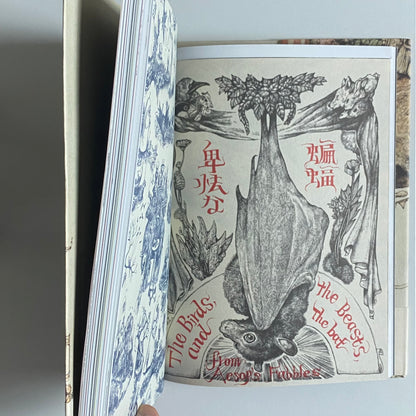 卑怯な
蝙蝠
The Birds,
and
the Beasts,
The bat
from
Aesop's Fabbles